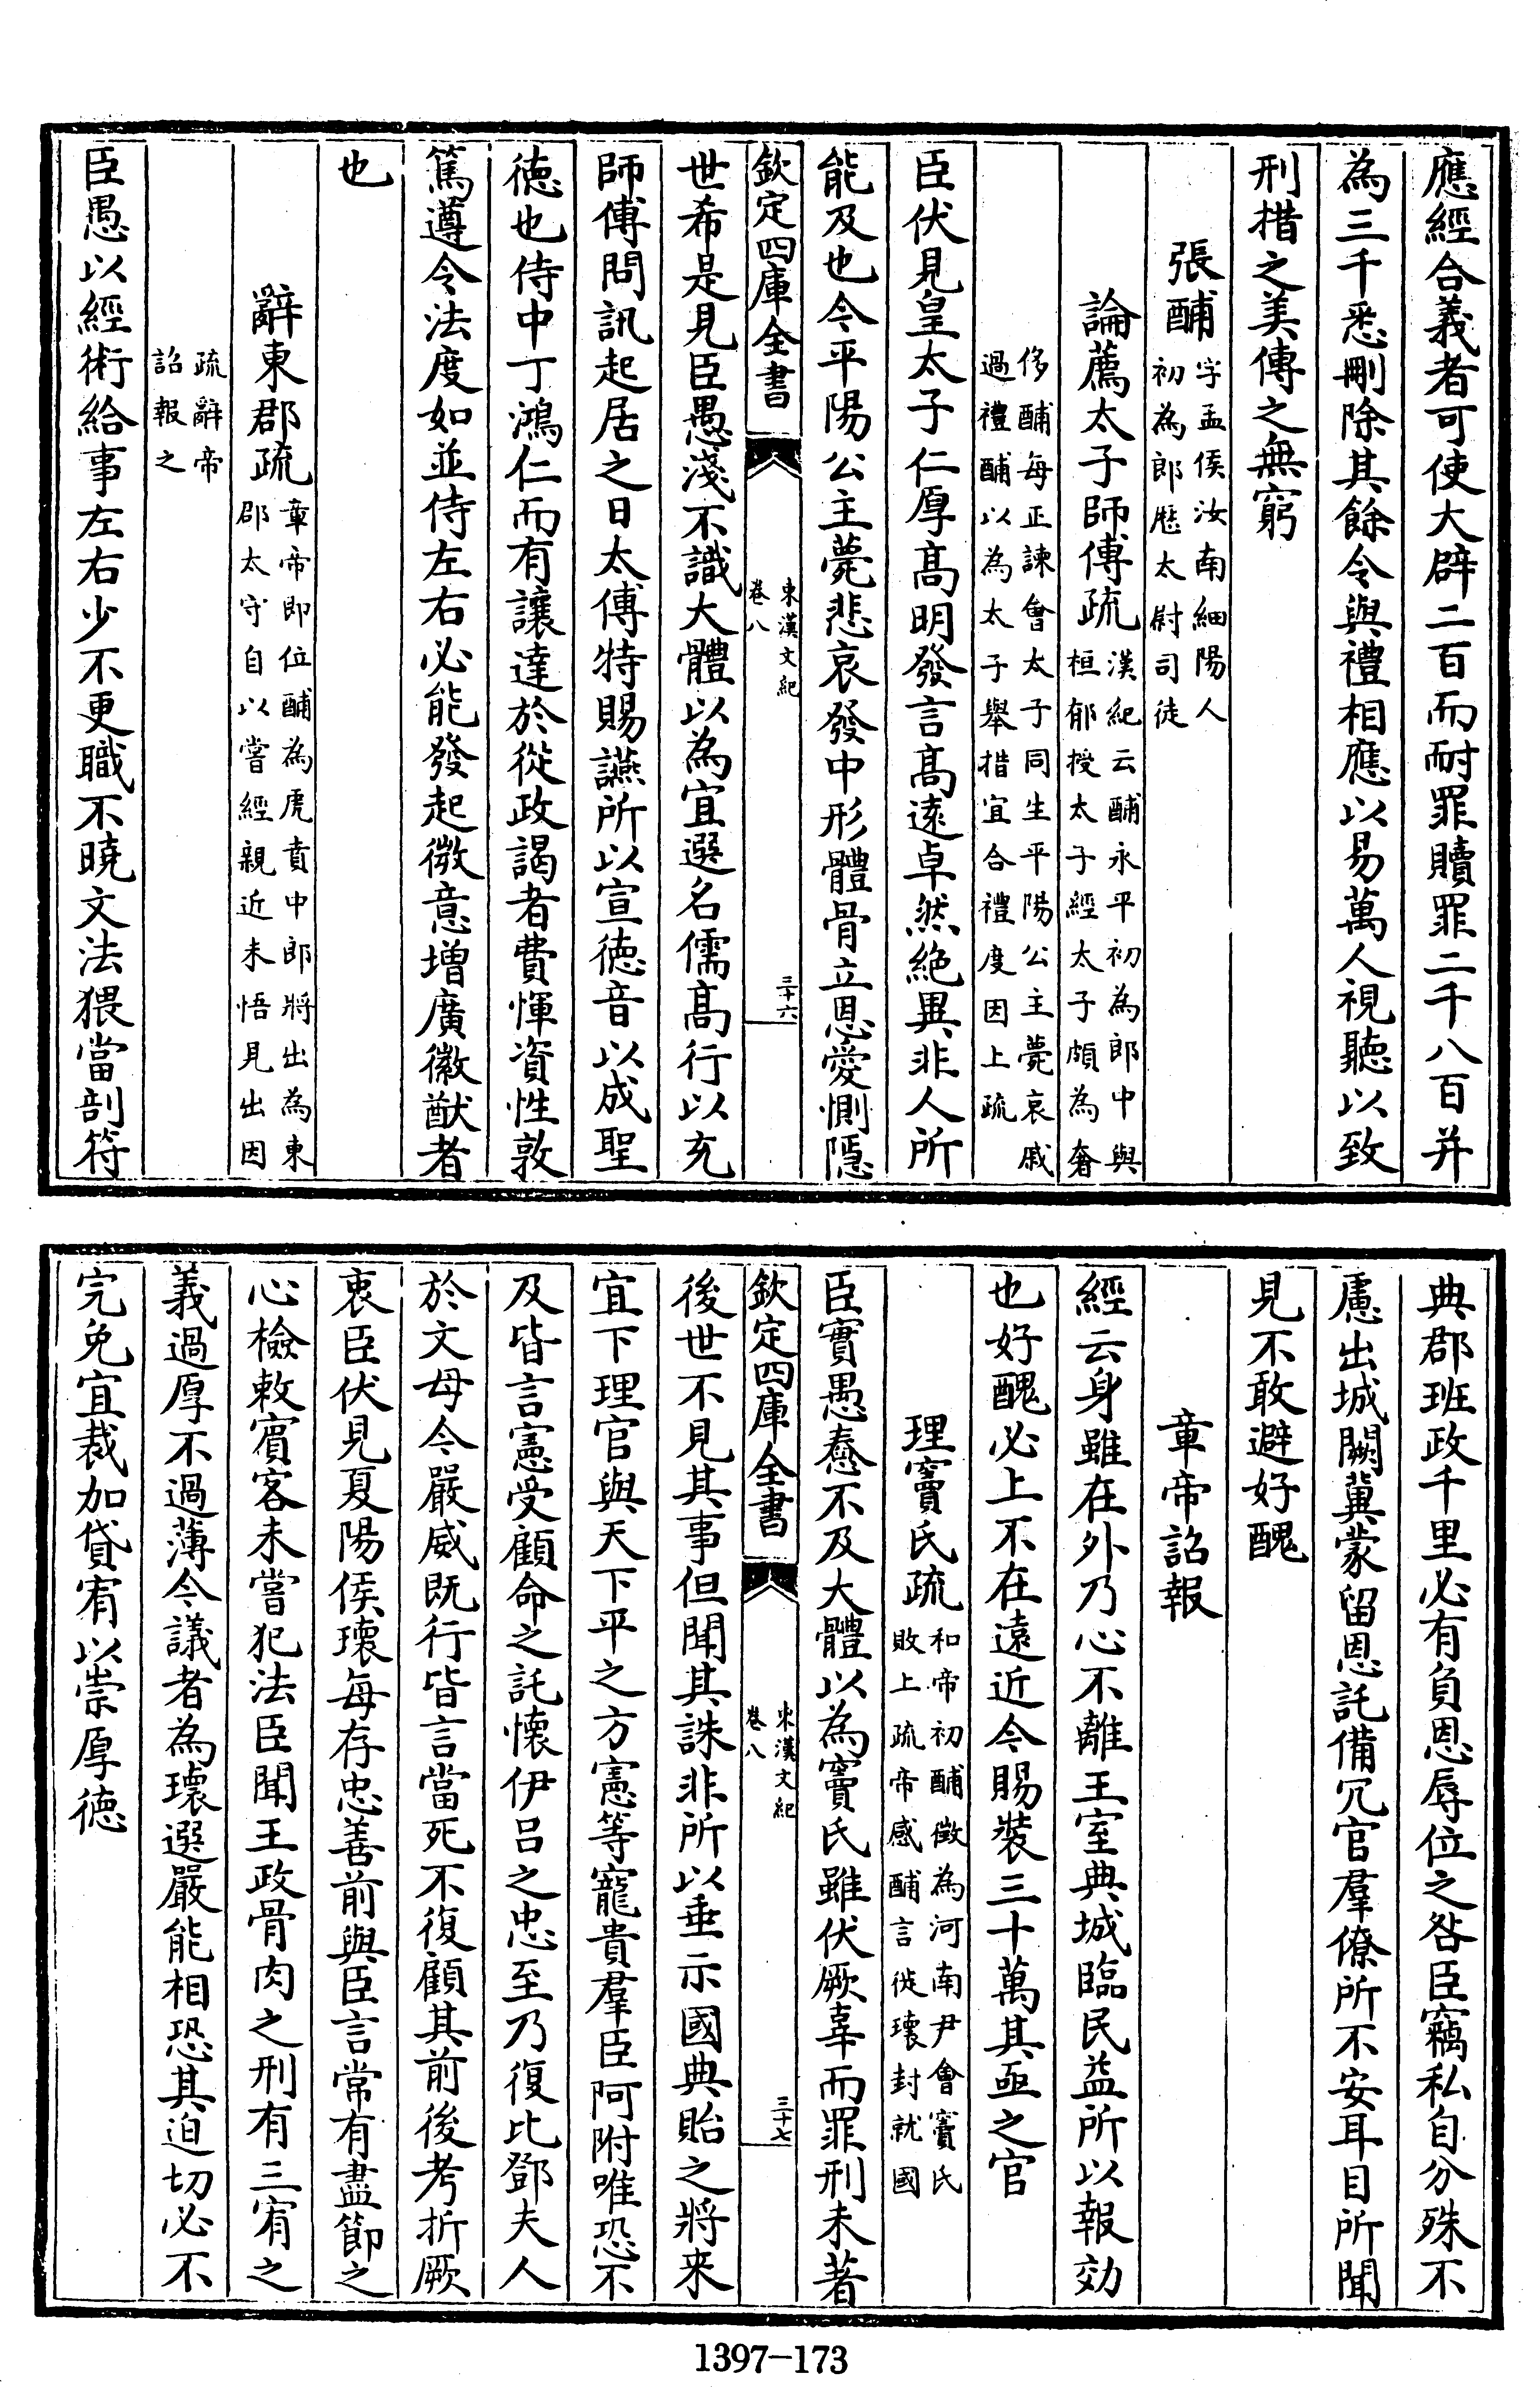 應經合義者可使大辟二百而耐罪贖罪二千八百并
為三千悉刪除其餘令與禮相應以易萬人視聽以致
刑措之美傳之無窮
張酺字孟侯汝南細陽人
初為郎歷太尉司徒
論薦太子師傅疏漢紀云酺永平初為郎中與
桓郁授太子經太子頗為奢
侈酺每正諫會太子同生平陽公主薨哀戚
過禮酺以為太子舉措宜合禮度因上疏
臣伏見皇太子仁厚髙明發言髙遠卓然絶異非人所
能及也今平陽公主薨悲哀發中形體骨立恩愛惻隱
欽定四庫全書
東漢文紀
卷八
三十六
世希是見臣愚淺不識大體以為宜選名儒髙行以充
師傅問訊起居之日太傅特賜讌所以宣徳音以成聖
徳也侍中丁鴻仁而有讓達於從政謁者費惲資性敦
篤遵令法度如並侍左右必能發起微意增廣徽猷者
也
辭東郡疏章帝即位酺為虎賁中郎將出為東
郡太守自以嘗經親近未悟見出因
疏辭帝
詔報之
臣愚以經術給事左右少不更職不曉文法猥當剖符
典郡班政千里必有負恩辱位之咎臣竊私自分殊不
慮出城闕冀蒙留恩託備冗官羣僚所不安耳目所聞
見不敢避好醜
章帝詔報
經云身雖在外乃心不離王室典城臨民益所以報効
也好醜必上不在遠近今賜裝三十萬其亟之官
理竇氏疏和帝初酺徵為河南尹會竇氏
敗上疏帝感酺言徙瓌封就國
臣實愚惷不及大體以為竇氏雖伏厥辜而罪刑未著
欽定四庫全書
東漢文紀
卷八
三十七
後世不見其事但聞其誅非所以垂示國典貽之將来
宜下理官與天下平之方憲等寵貴羣臣阿附唯恐不
及皆言憲受顧命之託懷伊吕之忠至乃復比鄧夫人
於文母今嚴威既行皆言當死不復顧其前後考折厥
衷臣伏見夏陽侯瓌每存忠善前與臣言常有盡節之
心檢敕賓客未嘗犯法臣聞王政骨肉之刑有三宥之
義過厚不過薄今議者為瓌選嚴能相恐其迫切必不
完免宜裁加貸宥以崇厚徳
1397-173